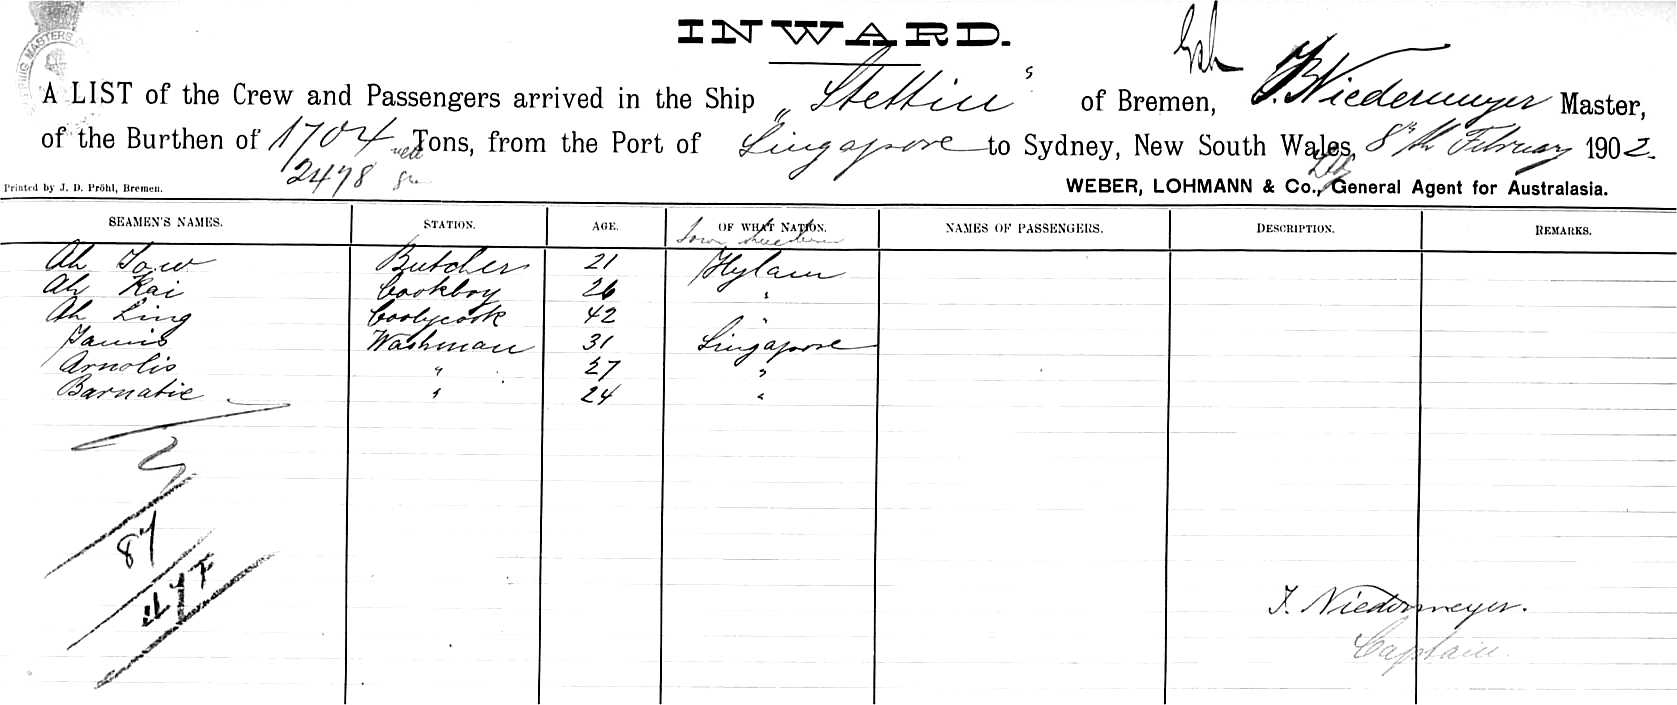 INWARD.
A LIST of the Crew and Passengers arrived in the Ship „Stettin“ of Bremen, Niedermeyer Master,
of the Burthen of 1704 Tons, from the Port of Singapore to Sydney, New South Wales, 8th February 1902.
2478
Printed by J. D. Pröhl, Bremen. WEBER, LOHMANN & Co., General Agent for Australasia.
SEAMEN'S NAMES. STATION. AGE. OF WHAT NATION. NAMES OF PASSENGERS. DESCRIPTION. REMARKS.
Ah Butcher 21 Hylam
Ah Kai Cookboy 26 "
Ah Ling Coolycook 42 "
Washman 31 Singapore
Arnolis " 27 "
Barnatie " 24 "
87
Niedermeyer.
Captain